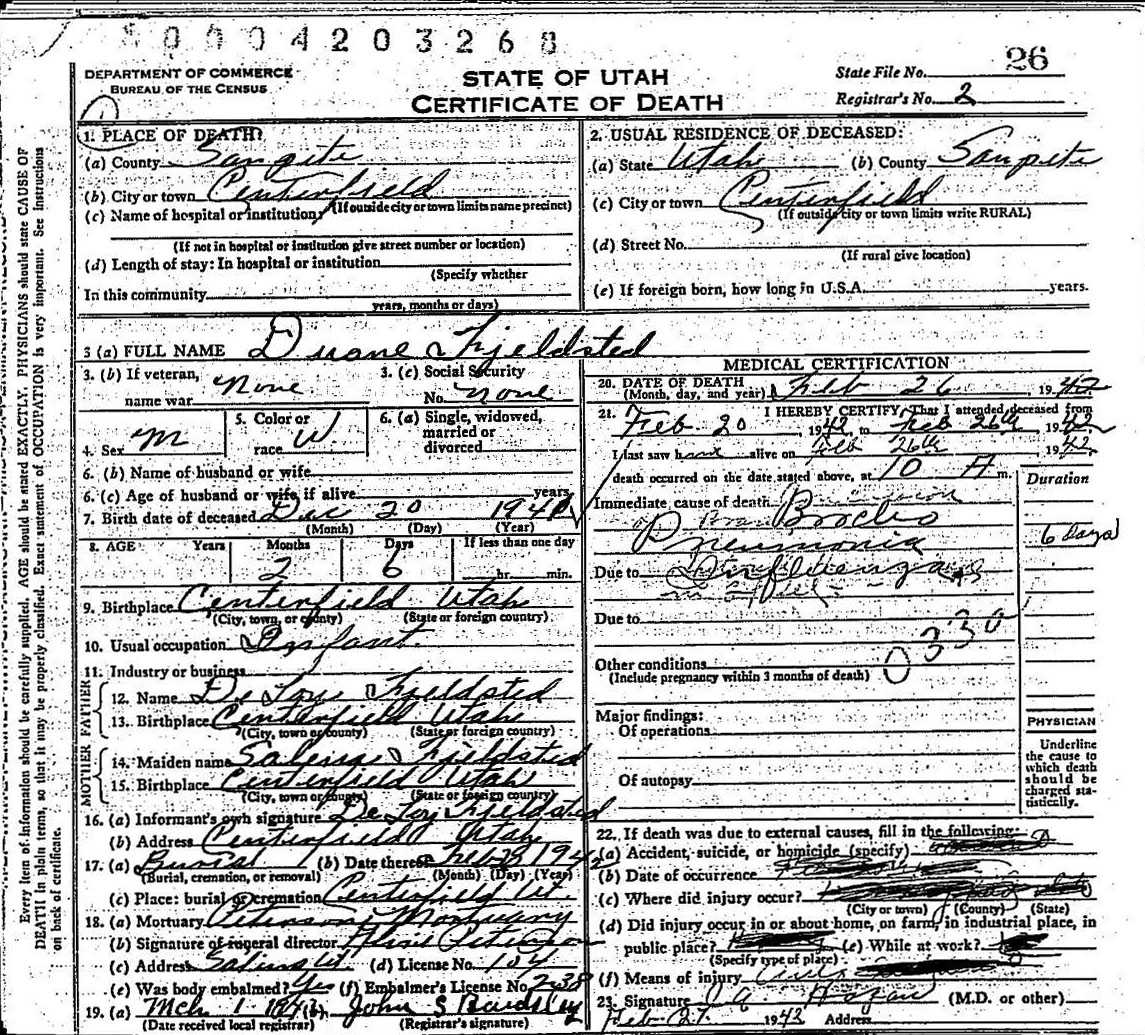 0004203268
26
DEPARTMENT OF COMMERCE
BUREAU OF THE CENSUS
STATE OF UTAH
CERTIFICATE OF DEATH
State File No.
Registrar's No. 2
Every item of information should be carefully supplied. AGE should be stated EXACTLY. PHYSICIANS should state CAUSE OF
DEATH in plain terms, so that it may be properly classified. Exact statement of OCCUPATION is very important. See Instructions
on back of certificate.
1. PLACE OF DEATH:
(a) County Sanpete
(b) City or town Centerfield
(If outside city or town limits name precinct)
(c) Name of hospital or institution:
(If not in hospital or institution give street number or location)
(d) Length of stay: In hospital or institution
(Specify whether
In this community
years, months or days)
2. USUAL RESIDENCE OF DECEASED:
(a) State Utah (b) County Sanpete
(c) City or town Centerfield
(If outside city or town limits write RURAL)
(d) Street No.
(If rural give location)
(e) If foreign born, how long in U.S.A. years.
3 (a) FULL NAME Duane Fjeldsted
3. (b) If veteran, name war None
3. (c) Social Security No. None
4. Sex M
5. Color or race W
6. (a) Single, widowed, married or divorced
6. (b) Name of husband or wife
6. (c) Age of husband or wife, if alive years
7. Birth date of deceased Dec 20 1941
(Month) (Day) (Year)
8. AGE Years Months Days If less than one day
2 6 hr. min.
9. Birthplace Centerfield Utah
(City, town, or county) (State or foreign country)
10. Usual occupation Infant.
11. Industry or business
FATHER
12. Name Fjeldsted
13. Birthplace Centerfield Utah
(City, town or county) (State or foreign country)
MOTHER
14. Maiden name Fjeldsted
15. Birthplace Centerfield Utah
(City, town or county) (State or foreign country)
16. (a) Informant's own signature De Loy Fjeldsted
(b) Address Centerfield Utah
17. (a) Burial (b) Date thereof Feb 28 1942
(Burial, cremation, or removal) (Month) (Day) (Year)
(c) Place: burial or cremation Centerfield Ut.
18. (a) Mortuary Petersons Mortuary
(b) Signature of funeral director Peterson
(c) Address Salina Ut. (d) License No. 104
(e) Was body embalmed? Yes (f) Embalmer's License No. 238
19. (a) Mch 1 1942 (b) John S
(Date received local registrar) (Registrar's signature)
MEDICAL CERTIFICATION
20. DATE OF DEATH
(Month, day, and year) Feb 26 1942
21. I HEREBY CERTIFY, That I attended deceased from
Feb 20, 1942 to Feb 26th 1942
I last saw h alive on Feb 26th 1942
death occurred on the date stated above, at 10 A m.
Duration
Immediate cause of death
Broncho
Pneumonia 6 days
Due to Influenza
Due to
Other conditions
(Include pregnancy within 3 months of death)
Major findings:
Of operations
Of autopsy
PHYSICIAN
Underline
the cause to
which death
should be
charged sta-
tistically.
22. If death was due to external causes, fill in the following:
(a) Accident, suicide, or homicide (specify)
(b) Date of occurrence
(c) Where did injury occur?
(City or town) (County) (State)
(d) Did injury occur in or about home, on farm, in industrial place, in
public place? (e) While at work?
(Specify type of place)
(f) Means of injury
23. Signature J.A. Hagan (M.D. or other)
Feb 27. 1942 Address